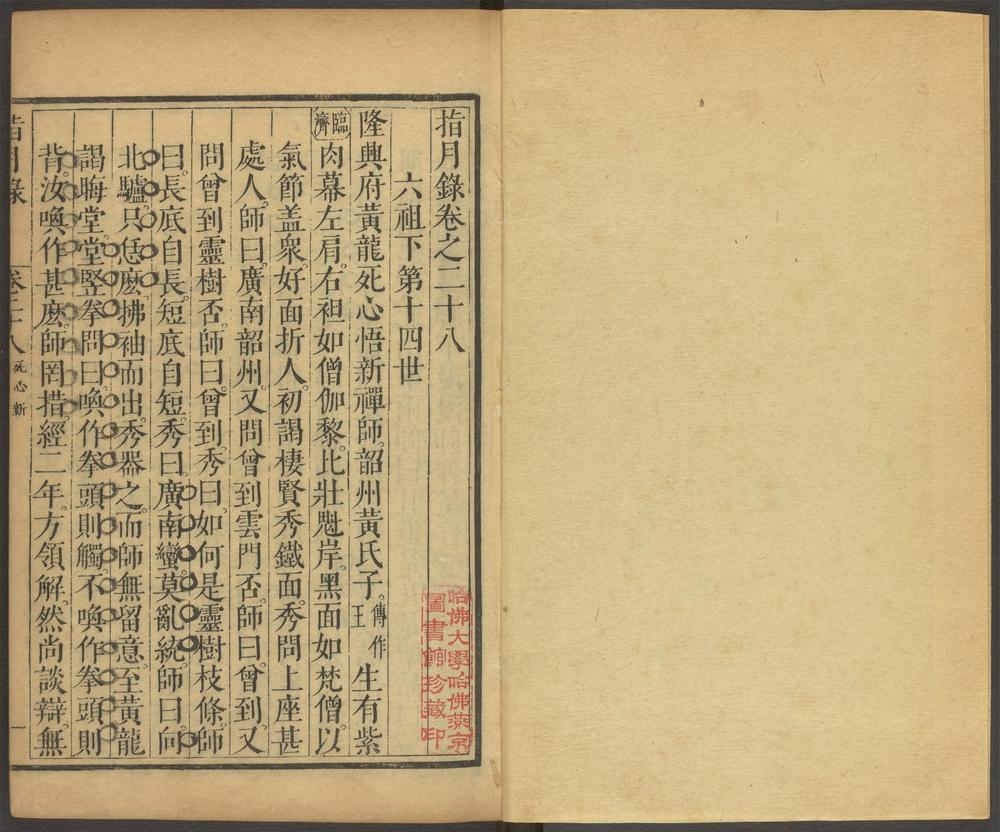 指月錄卷之二十八
六祖下第十四世
隆興府黃龍死心悟新禪師。韶州黃氏子。傳作王生有紫
臨濟
肉幕左肩。右袒如僧伽黎。比壯魁岸。黑面如梵僧。以
氣節盖衆。好面折人。初謁棲賢秀鐵面。秀問上座甚
處人。師曰。廣南韶州。又問曾到雲門否。師曰曾到。又
問曾到靈樹否。師曰。曾到。秀曰。如何是靈樹枝條。師
曰。長底自長。短底自短。秀曰。廣南蠻莫亂統。師曰。向
北驢。只恁麽。拂袖而出。秀器之。而師無留意。至黃龍
謁晦堂。堂竪拳問曰。喚作拳頭則觸。不喚作拳頭則
背。汝喚作甚麽。師罔措。經二年。方領解。然尚談辯。無
指月錄
卷二十八
死心新
一
哈佛大學哈佛燕京
圖書館珍藏印